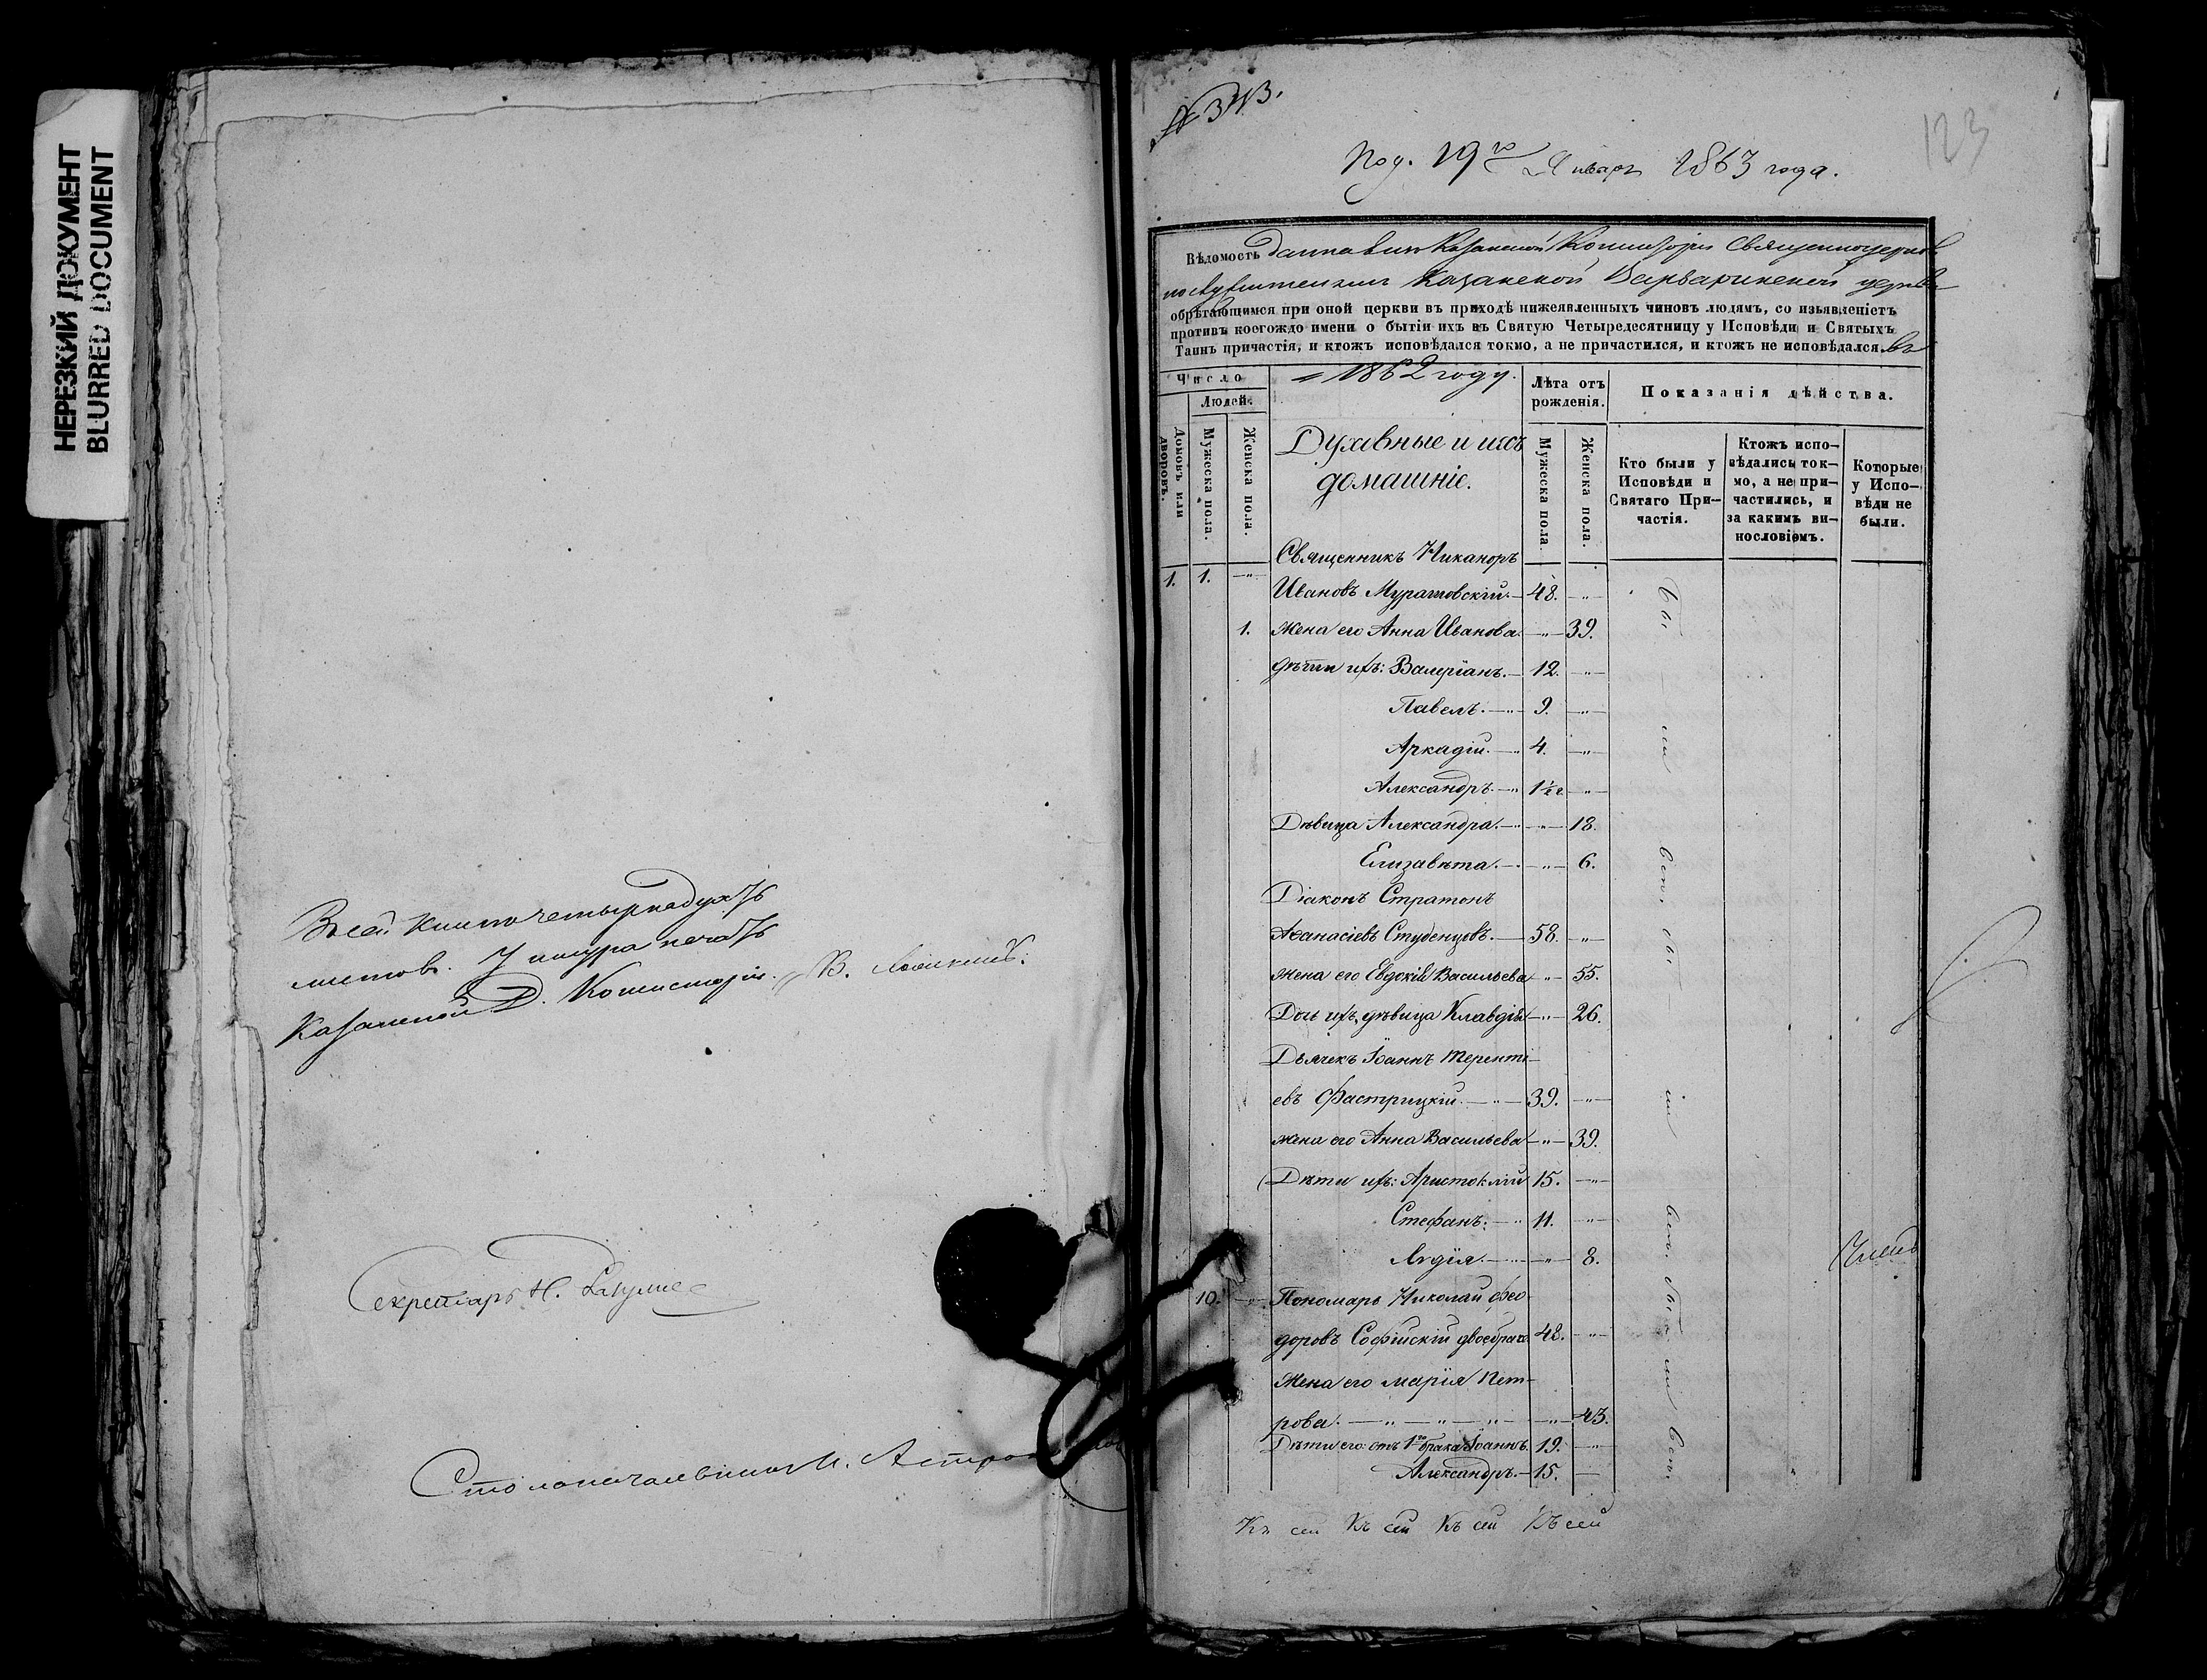 НЕРЕЗКИЙ ДОКУМЕНТ
BLURRED DOCUMENT
В сей книге четырнадцать
листов. У шнура печать
Казанской Д. Консисторіи. В.
Секретарь Н.
Столоначальникъ И.
№ 343.
123
Под. 19го Января 1863 года.
Вѣдомость данная изъ Казанской Консисторіи Священноцерков
нослужителямъ Казанской Варваринской церкви
обрѣтающимся при оной церкви въ приходѣ нижеявленныхъ чиновъ людямъ, со изъявленіемъ
противъ коегождо имени о бытіи ихъ въ Святую Четыредесятницу у Исповѣди и Святыхъ
Таинъ причастія, и ктожъ исповѣдался токмо, а не причастился, и ктожъ не исповѣдался въ
1862 году.
Число
Людей.
Домовъ или дворовъ.
Мужеска пола.
Женска пола.
Духовные и ихъ
домашніе.
Лѣта отъ
рожденія.
Мужеска пола.
Женска пола.
Показанія дѣйства.
Кто были у
Исповѣди и
Святаго При-
частія.
Ктожъ испо-
вѣдались ток-
мо, а не при-
частились, и
за какимъ ви-
нословіемъ.
Которые
у Испо-
вѣди не
были.
Священникъ Никаноръ
1. 1. —"— Ивановъ Муратовскій. — 48. —"—
1. жена его Анна Иванова. —"— 39.
дѣти ихъ: Валеріанъ. — 12. —"—
Павелъ. —"— 9. —"—
Аркадій. —"— 4. —"—
Александръ. —"— 1½ —"—
Дѣвица Александра. —"— 18.
Елизавѣта. —"— 6.
Діаконъ Стратонъ
Аѳанасіевъ Студенцовъ. — 58. —"—
жена его Евдокія Васильева —"— 55.
Дочь ихъ дѣвица Клавдія —"— 26.
Дьячекъ Іоаннъ Теренті-
евъ Фастрицкій. —"— 39. —"—
жена его Анна Васильева —"— 39.
Дѣти ихъ: Аристоклій 15. —"—
Стефанъ. —"— 11. —"—
Лидія. —"— 8.
10. Пономарь Николай Фео-
доровъ Софійскій двоебрач. 48. —"—
Жена его Марія Пет-
рова. —"—"—"— 43.
Дѣти его отъ 1го брака Іоаннъ. 19. —"—
Александръ. — 15. —
бы — ли
исп. бы —
ли
исп. бы — ли исп.
Членъ
Къ сей Къ сей Къ сей Къ сей